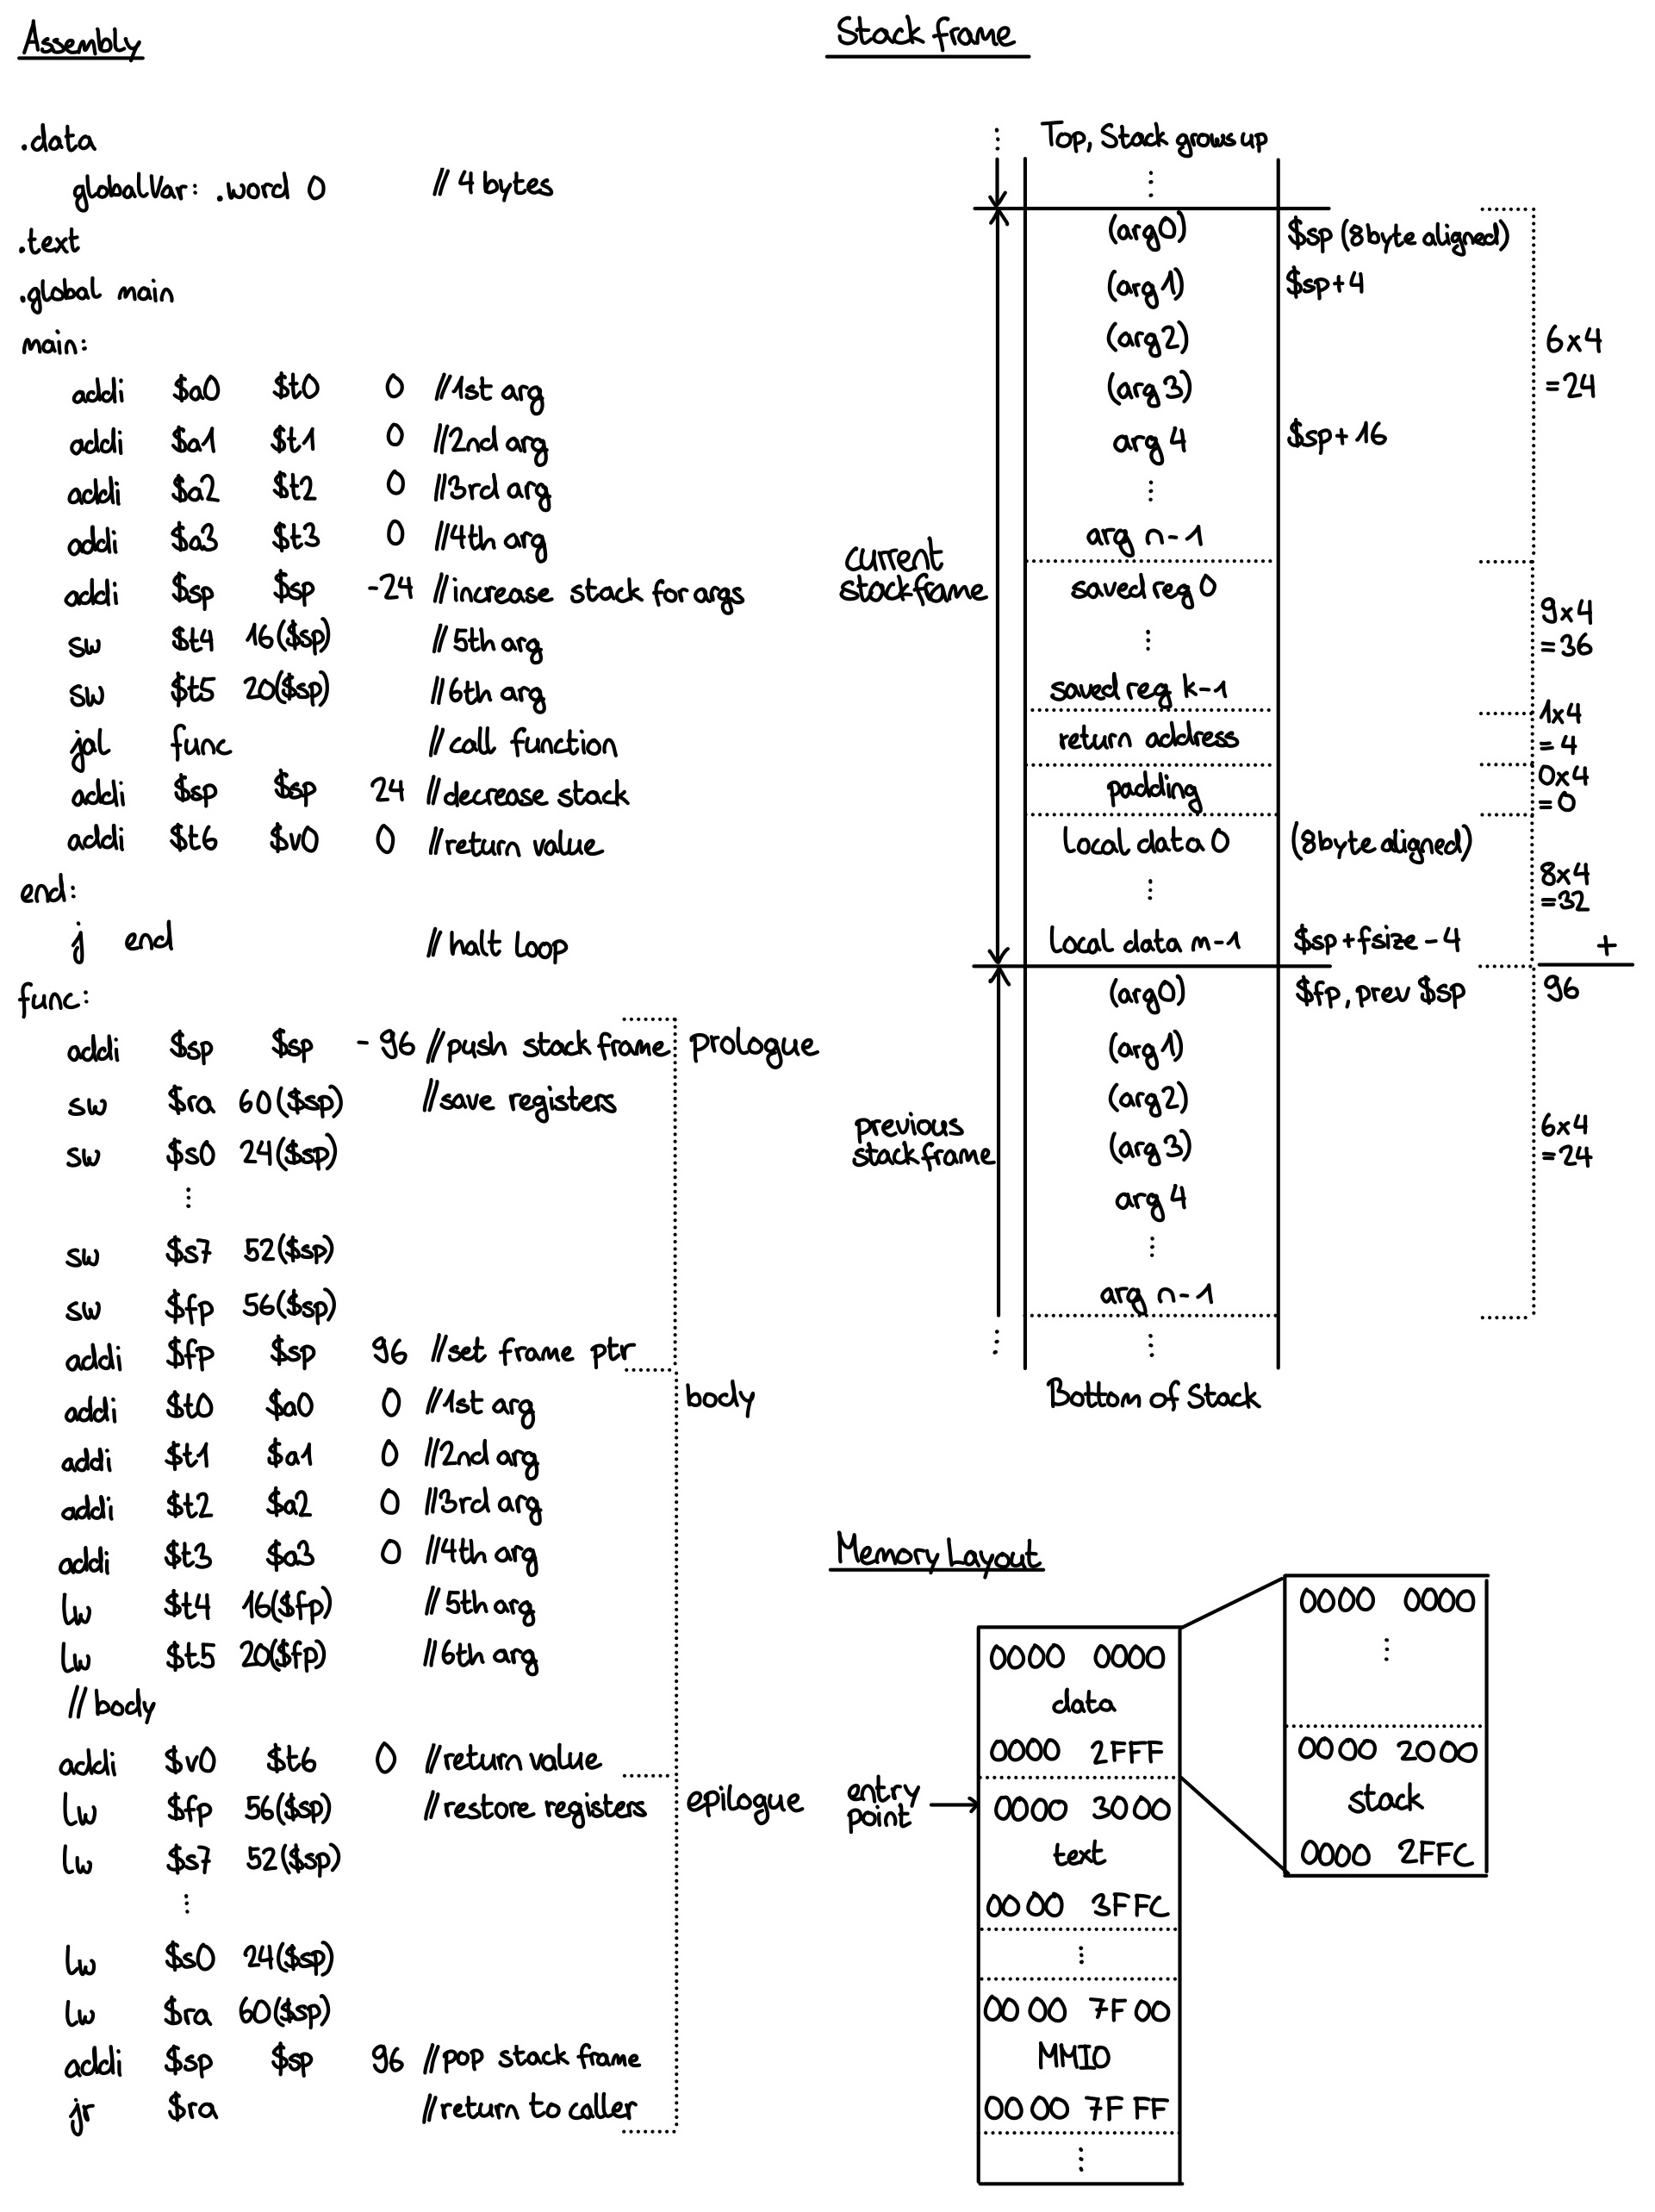 Assembly
.data
globalVar: .word 0 // 4 bytes
.text
.global main
main:
addi $a0 $t0 0 //1st arg
addi $a1 $t1 0 //2nd arg
addi $a2 $t2 0 //3rd arg
addi $a3 $t3 0 //4th arg
addi $sp $sp -24 //increase stack for args
sw $t4 16($sp) //5th arg
sw $t5 20($sp) //6th arg
jal func //call function
addi $sp $sp 24 //decrease stack
addi $t6 $v0 0 //return value
end:
j end //halt loop
func:
addi $sp $sp -96 //push stack frame
sw $ra 60($sp) //save registers
sw $s0 24($sp)
⋮
sw $s7 52($sp)
sw $fp 56($sp)
addi $fp $sp 96 //set frame ptr
addi $t0 $a0 0 //1st arg
addi $t1 $a1 0 //2nd arg
addi $t2 $a2 0 //3rd arg
addi $t3 $a3 0 //4th arg
lw $t4 16($fp) //5th arg
lw $t5 20($fp) //6th arg
//body
addi $v0 $t6 0 //return value
lw $fp 56($sp) //restore registers
lw $s7 52($sp)
⋮
lw $s0 24($sp)
lw $ra 60($sp)
addi $sp $sp 96 //pop stack frame
jr $ra //return to caller
prologue
body
epilogue
Stack frame
Top, Stack grows up
⋮
(arg0) $sp (8byte aligned)
(arg1) $sp+4
(arg2)
(arg3)
arg 4 $sp+16
⋮
arg n-1
saved reg 0
⋮
saved reg k-1
return address
padding
local data 0 (8byte aligned)
⋮
local data m-1 $sp+fsize-4
(arg0) $fp, prev $sp
(arg1)
(arg2)
(arg3)
arg 4
⋮
arg n-1
⋮
Bottom of Stack
current
stackframe
previous
stackframe
6x4
=24
9x4
=36
1x4
=4
0x4
=0
8x4
=32
+
96
6x4
=24
Memory Layout
0000 0000
data
0000 2FFF
entry
point
0000 3000
text
0000 3FFC
⋮
0000 7F00
MMIO
0000 7FFF
⋮
0000 0000
⋮
0000 2000
stack
0000 2FFC